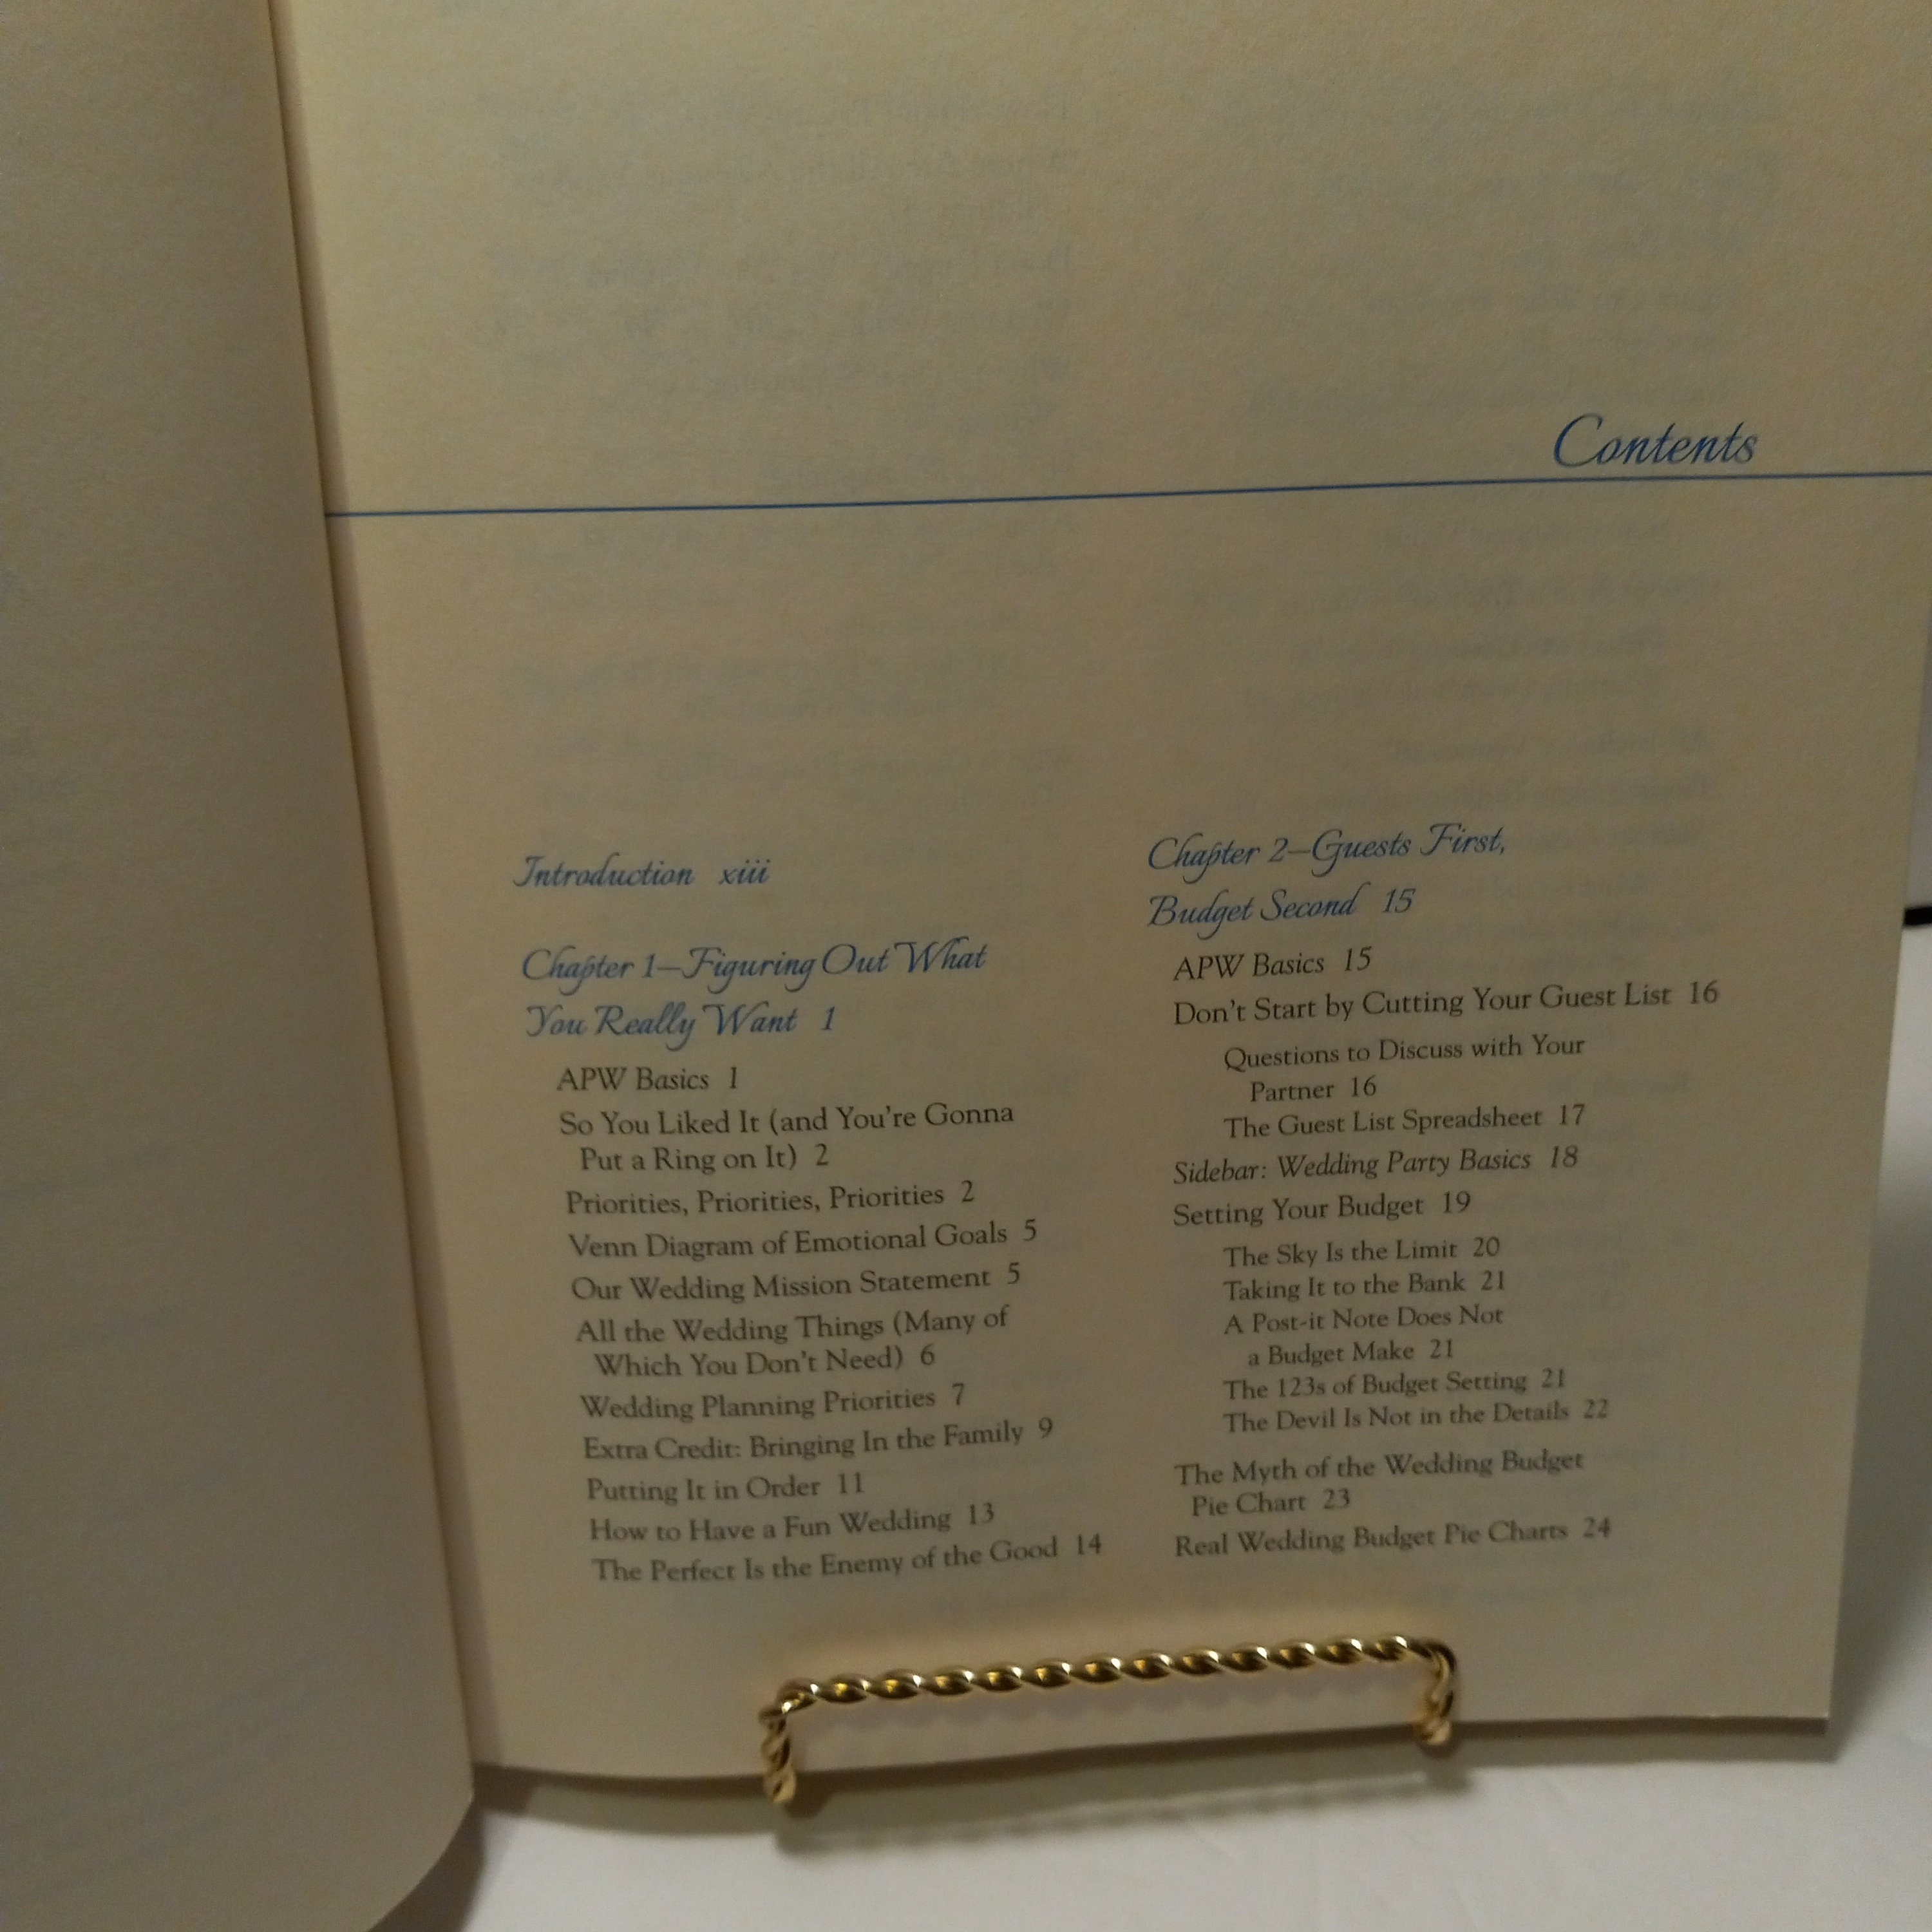 Contents
Introduction xiii
Chapter 1—Figuring Out What
You Really Want 1
APW Basics 1
So You Liked It (and You're Gonna
Put a Ring on It) 2
Priorities, Priorities, Priorities 2
Venn Diagram of Emotional Goals 5
Our Wedding Mission Statement 5
All the Wedding Things (Many of
Which You Don't Need) 6
Wedding Planning Priorities 7
Extra Credit: Bringing In the Family 9
Putting It in Order 11
How to Have a Fun Wedding 13
The Perfect Is the Enemy of the Good 14
Chapter 2—Guests First,
Budget Second 15
APW Basics 15
Don't Start by Cutting Your Guest List 16
Questions to Discuss with Your
Partner 16
The Guest List Spreadsheet 17
Sidebar: Wedding Party Basics 18
Setting Your Budget 19
The Sky Is the Limit 20
Taking It to the Bank 21
A Post-it Note Does Not
a Budget Make 21
The 123s of Budget Setting 21
The Devil Is Not in the Details 22
The Myth of the Wedding Budget
Pie Chart 23
Real Wedding Budget Pie Charts 24